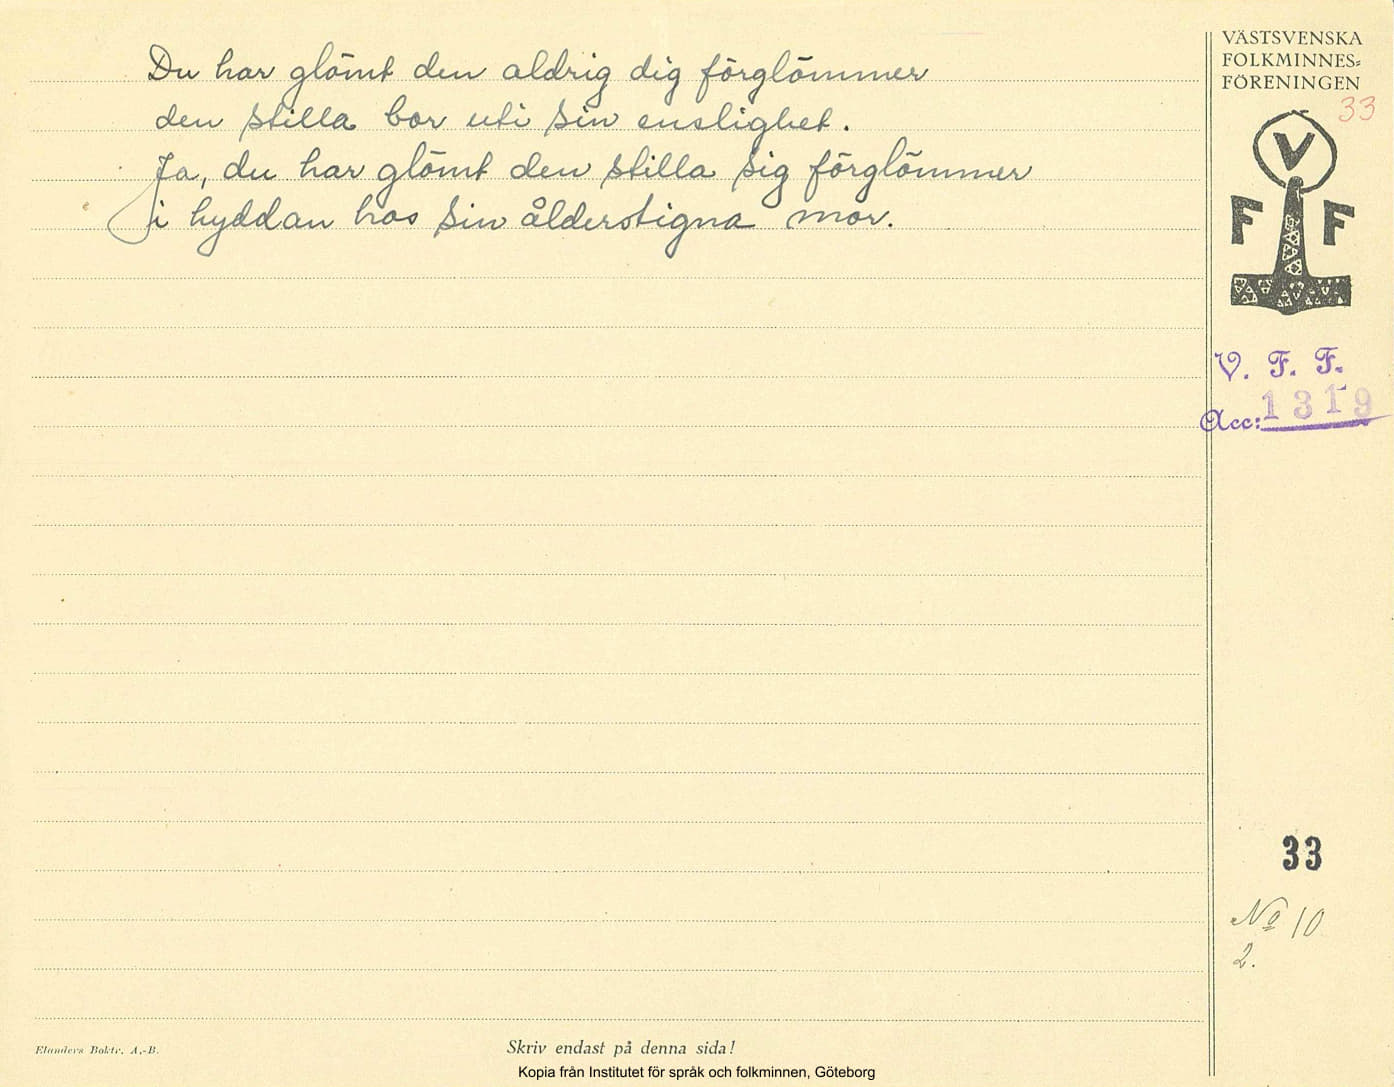 Du har glömt den aldrig dig förglömmer
den stilla bor uti sin enslighet.
Ja, du har glömt den stilla sig förglömmer
i hyddan hos sin ålderstigna mor.
VÄSTSVENSKA
FOLKMINNES-
FÖRENINGEN
33
V
F F
V. F. F.
Acc: 1319
33
No 10
2.
Elanders Boktr. A.-B.
Skriv endast på denna sida!
Kopia från Institutet för språk och folkminnen, Göteborg